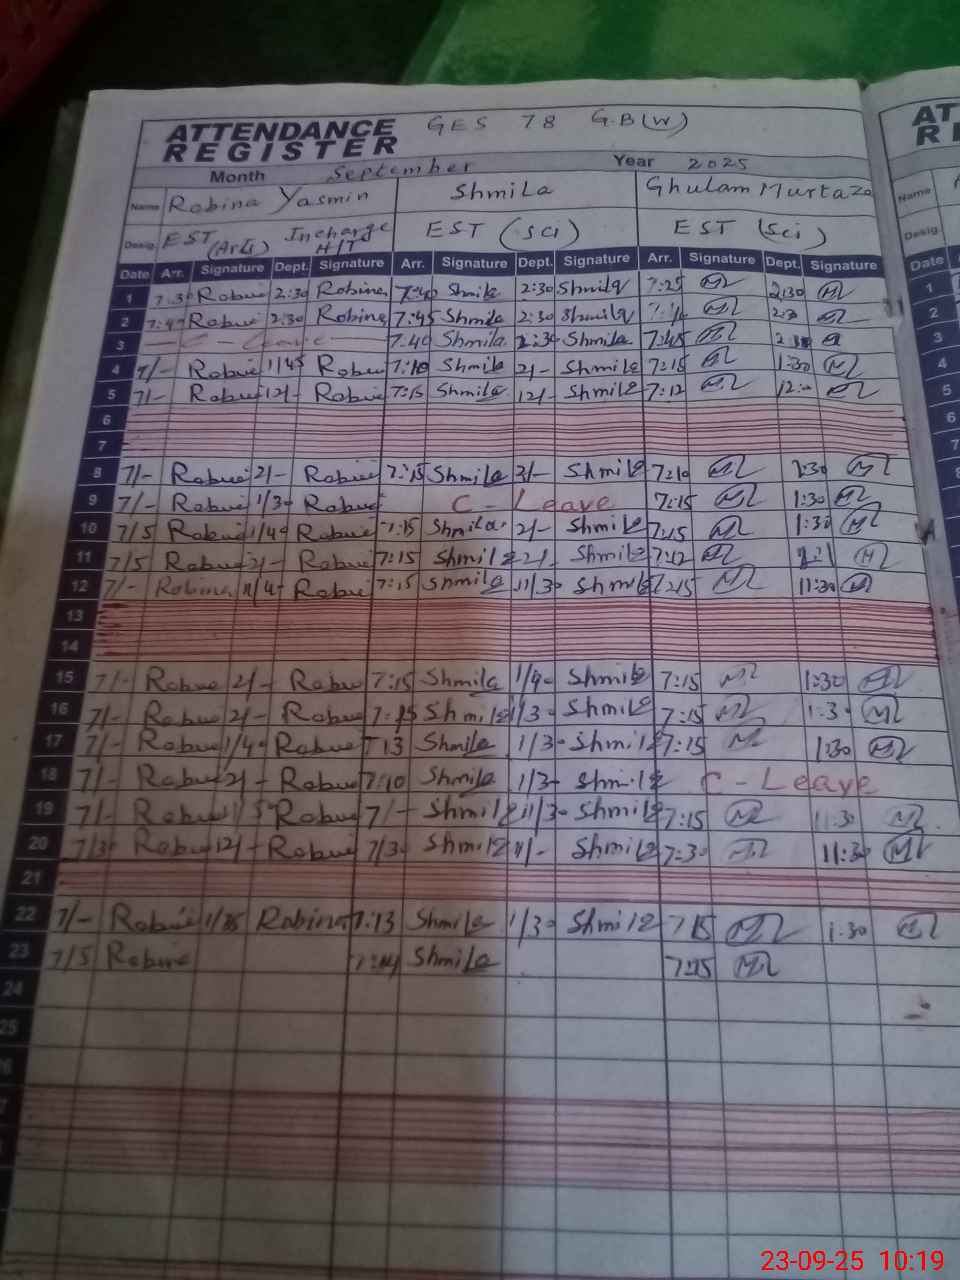 ATTENDANCE REGISTER GES 78 G.B(W)
Month September Year 2025
Name Robina Yasmin Shmila Ghulam Murtaza
Desig. EST (Arts) Incharge H/T EST (Sci) EST (Sci)
Date Arr. Signature Dept. Signature Arr. Signature Dept. Signature Arr. Signature Dept. Signature
1 7:30 Robina 2:30 Robina 7:40 Shmila 2:30 Shmila 7:25 2:30
2 Robina 2:30 Robina 7:45 Shmila 2:30 Shmila
3 C - Leave 7:40 Shmila 2:30 Shmila 7:45
4 7/- Robina 1/45 Robina 7:10 Shmila 2/- Shmila 7:15 1:30
5 7/- Robina 12/- Robina 7:15 Shmila 12/- Shmila 7:12
6
7
8 7/- Robina 2/- Robina 7:15 Shmila 2/- Shmila 7:10 1:30
9 7/- Robina 1/30 Robina C - Leave 7:15 1:30
10 7/5 Robina 1/40 Robina 7:15 Shmila 2/- Shmila 7:15 1:30
11 7/5 Robina 2/- Robina 7:15 Shmila 2/- Shmila 7:12
12 7/- Robina Robina 7:15 Shmila 11/30 Shmila 7:15 11:30
13
14
15 7/- Robina 2/- Robina 7:15 Shmila 1/40 Shmila 7:15 1:30
16 7/- Robina 2/- Robina 7:15 Shmila 1/30 Shmila 7:15 1:30
17 7/- Robina 1/40 Robina 7:13 Shmila 1/30 Shmila 7:15 1:30
18 7/- Robina 2/- Robina 7:10 Shmila 1/30 Shmila C - Leave
19 7/- Robina Robina 7/- Shmila 11/30 Shmila 7:15 11:30
20 7/30 Robina 12/- Robina 7/30 Shmila 11/- Shmila 7:30 11:30
21
22 7/- Robina Robina 7:13 Shmila 1/30 Shmila 7:15 1:30
23 7/5 Robina Shmila 7:15
24
25
23-09-25 10:19